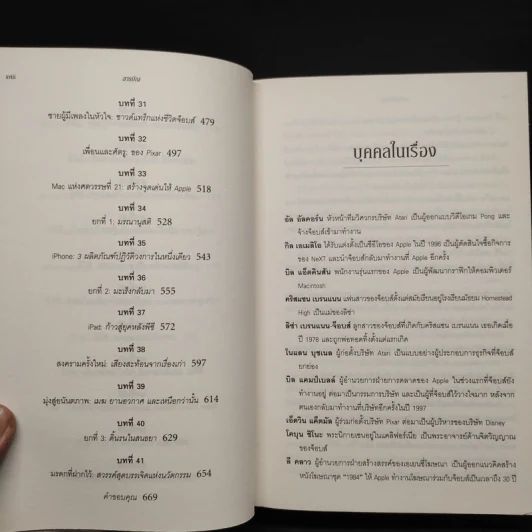 สารบัญ
บทที่ 31
ชายผู้มีเพลงในหัวใจ: ซาวด์แทร็กแห่งชีวิตจ็อบส์ 479
บทที่ 32
เพื่อนและศัตรู: ของ Pixar 497
บทที่ 33
Mac แห่งศตวรรษที่ 21: สร้างจุดเด่นให้ Apple 518
บทที่ 34
ยกที่ 1: มรณานุสติ 528
บทที่ 35
iPhone: 3 ผลิตภัณฑ์ปฏิวัติวงการในหนึ่งเดียว 543
บทที่ 36
ยกที่ 2: มะเร็งกลับมา 555
บทที่ 37
iPad: ก้าวสู่ยุคหลังพีซี 572
บทที่ 38
สงครามครั้งใหม่: เสียงสะท้อนจากเรื่องเก่า 597
บทที่ 39
มุ่งสู่อนันตภาพ: เมฆ ยานอวกาศ และเหนือกว่านั้น 614
บทที่ 40
ยกที่ 3: ดิ้นรนในสนธยา 629
บทที่ 41
มรดกที่ฝากไว้: สวรรค์สุดบรรเจิดแห่งนวัตกรรม 654
คำขอบคุณ 669
บุคคลในเรื่อง
อัล อัลคอร์น หัวหน้าทีมวิศวกรบริษัท Atari เป็นผู้ออกแบบวิดีโอเกม Pong และ
จ้างจ็อบส์เข้ามาทำงาน
กิล อเมลิโอ ได้รับแต่งตั้งเป็นซีอีโอของ Apple ในปี 1996 เป็นผู้ตัดสินใจซื้อกิจการ
ของ NeXT และนำจ็อบส์กลับมาทำงานที่ Apple อีกครั้ง
บิล แอ็ตคินสัน พนักงานรุ่นแรกของ Apple เป็นผู้พัฒนากราฟิกให้คอมพิวเตอร์
Macintosh
คริสแซน เบรนแนน แฟนสาวของจ็อบส์ตั้งแต่สมัยเรียนอยู่โรงเรียนมัธยม Homestead
High เป็นแม่ของลิซ่า
ลิซ่า เบรนแนน-จ็อบส์ ลูกสาวของจ็อบส์ที่เกิดกับคริสแซน เบรนแนน เธอเกิดเมื่อ
ปี 1978 และถูกพ่อทอดทิ้งตั้งแต่แรกเกิด
โนแลน บุชเนล ผู้ก่อตั้งบริษัท Atari เป็นแบบอย่างผู้ประกอบการธุรกิจที่จ็อบส์
ยกย่อง
บิล แคมป์เบลล์ ผู้อำนวยการฝ่ายการตลาดของ Apple ในช่วงแรกที่จ็อบส์ยัง
ทำงานอยู่ ต่อมาเป็นกรรมการบริษัท และเป็นผู้ที่จ็อบส์ไว้วางใจมาก หลังจาก
ตนเองกลับมาทำงานที่บริษัทอีกครั้งในปี 1997
เอ็ดวิน แค็ตมัล ผู้ร่วมก่อตั้งบริษัท Pixar ต่อมาเป็นผู้บริหารของบริษัท Disney
โคบุน ชิโนะ พระนิกายเซนอยู่ในแคลิฟอร์เนีย เป็นพระอาจารย์ด้านจิตวิญญาณ
ของจ็อบส์
ลี คลาว ผู้อำนวยการฝ่ายสร้างสรรค์ของเอเยนซีโฆษณา เป็นผู้ออกแนวคิดสร้าง
หนังโฆษณาชุด "1984" ให้ Apple ทำงานโฆษณาร่วมกับจ็อบส์เป็นเวลาถึง 30 ปี